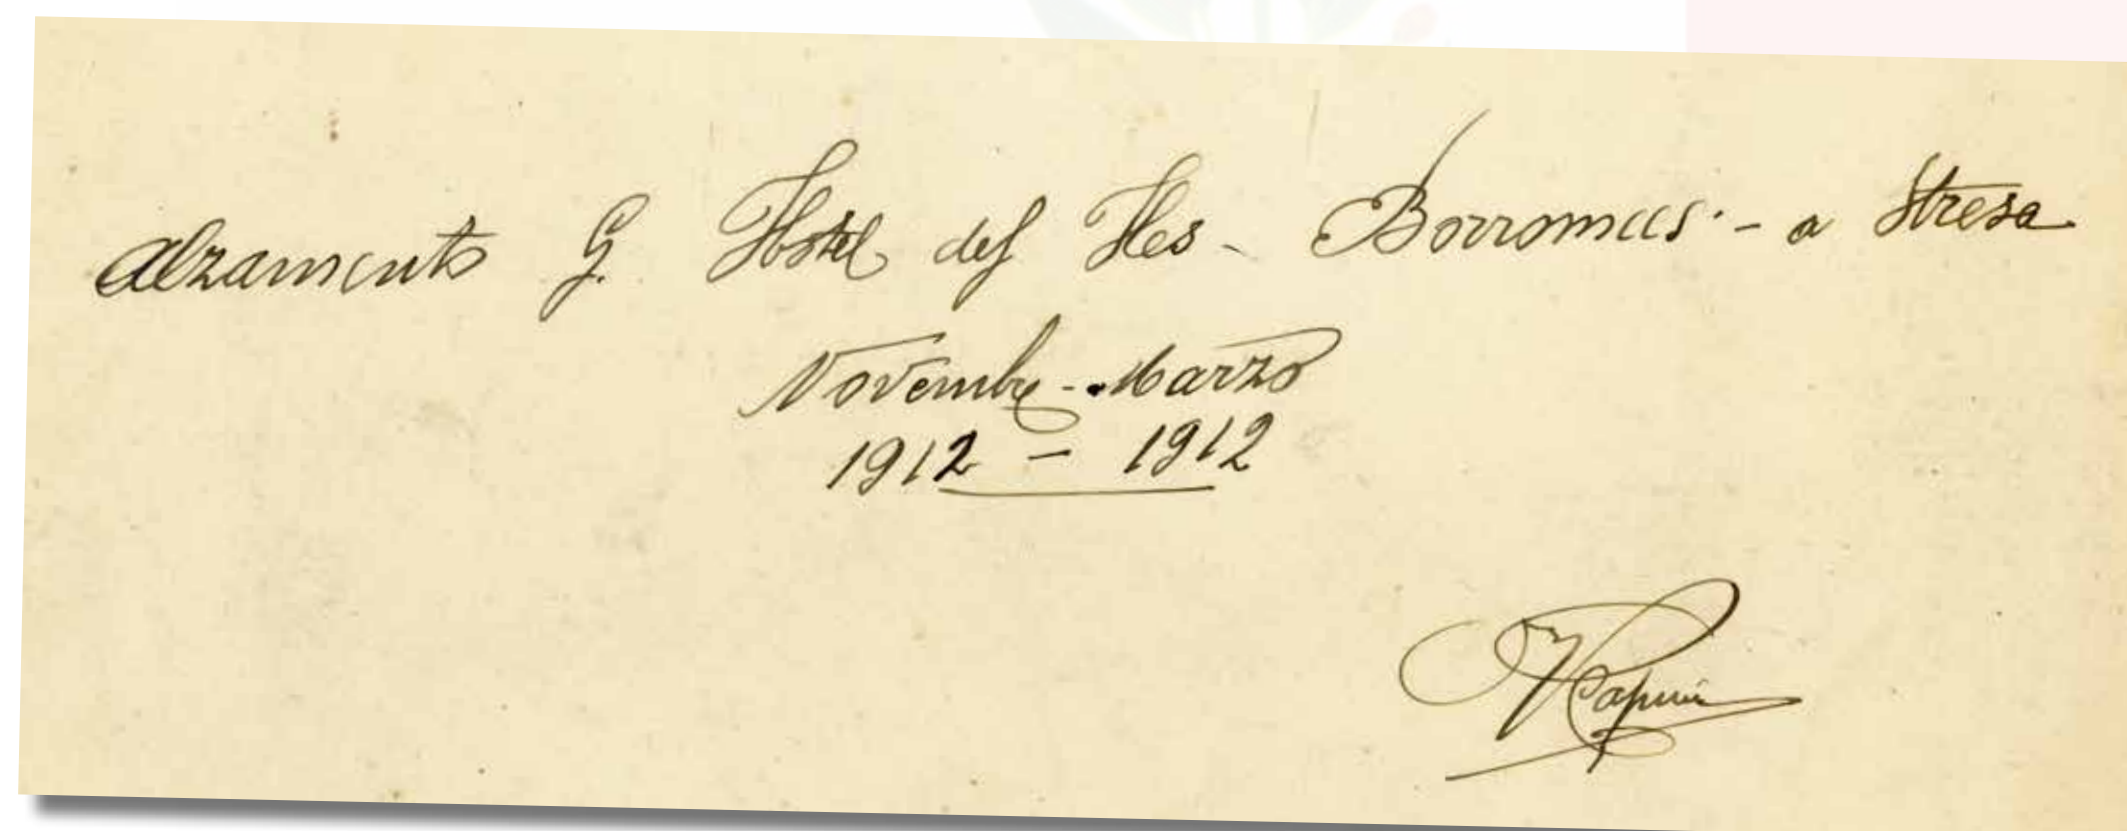 Alzamento G. Hotel des Iles - Borromees - a Stresa
Novembre - Marzo
1912 - 1912